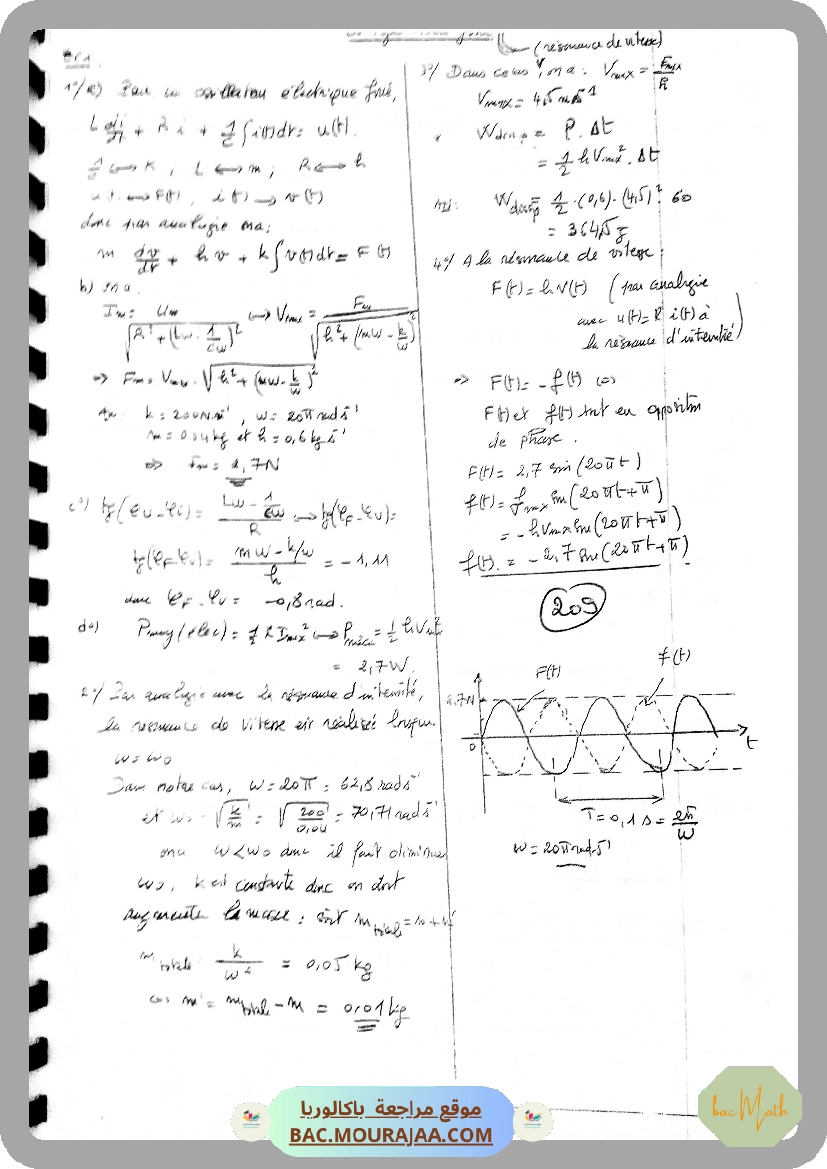 (résonance de vitesse)
1°/a) Pour un oscillateur électrique forcé,
L di/dt + Ri + 1/C ∫i(t)dt = u(t).
1/C ↔ K ; L ↔ m ; R ↔ h
u(t) ↔ F(t), i(t) → v(t)
donc par analogie on a :
m dv/dt + hv + k∫v(t)dt = F(t)
b) on a
Im = Um / √(R² + (Lω - 1/Cω)²) ↔ Vmax = Fm / √(h² + (mω - k/ω)²)
=> Fm = Vmax . √(h² + (mω - k/ω)²)
AN: k = 200 N.m⁻¹, ω = 20π rad s⁻¹
m = 0,04 kg et h = 0,6 kg s⁻¹
=> Fm = 2,7N
c°) tg(φu - φi) = (Lω - 1/Cω) / R → tg(φF - φv) =
tg(φF - φv) = (mω - k/ω) / h = -1,11
donc φF - φv = -0,8 rad.
d°) Pmoy (élec) = 1/2 R Imax² ↔ Pméca = 1/2 h Vm²
= 2,7W.
2°/ Par analogie avec la résonance d'intensité,
la résonance de vitesse est réalisée lorsque
ω = ω0
Dans notre cas, ω = 20π = 62,8 rad s⁻¹
et ω0 = √(k/m) = √(200/0,04) = 70,71 rad s⁻¹
on a ω < ω0 donc il faut diminuer
ω0, k est constante donc on doit
augmenter la masse : soit m totale = m + m'
m totale = k/ω² = 0,05 kg
m' = m totale - m = 0,01 kg
3°/ Dans ce cas, on a : Vmax = Fmax/h
Vmax = 4,5 m s⁻¹
Wdissip = P. Δt
= 1/2 h Vmax² . Δt
AN: Wdissip = 1/2 . (0,6) . (4,5)² . 60
= 364,5 J
4°/ A la résonance de vitesse :
F(t) = h V(t) (par analogie
avec u(t) = R i(t) à
la résonance d'intensité)
=> F(t) = - f(t) ⇔
F(t) et f(t) sont en opposition
de phase.
F(t) = 2,7 sin(20πt)
f(t) = fmax sin(20πt + π)
= - h Vmax sin(20πt + π)
f(t) = - 2,7 sin(20πt + π)
209
F(t)
f(t)
2,7N
0
t
T = 0,1 s = 2π/ω
ω = 20π rad.s⁻¹
موقع مراجعة باكالوريا
BAC.MOURAJAA.COM
bac Math